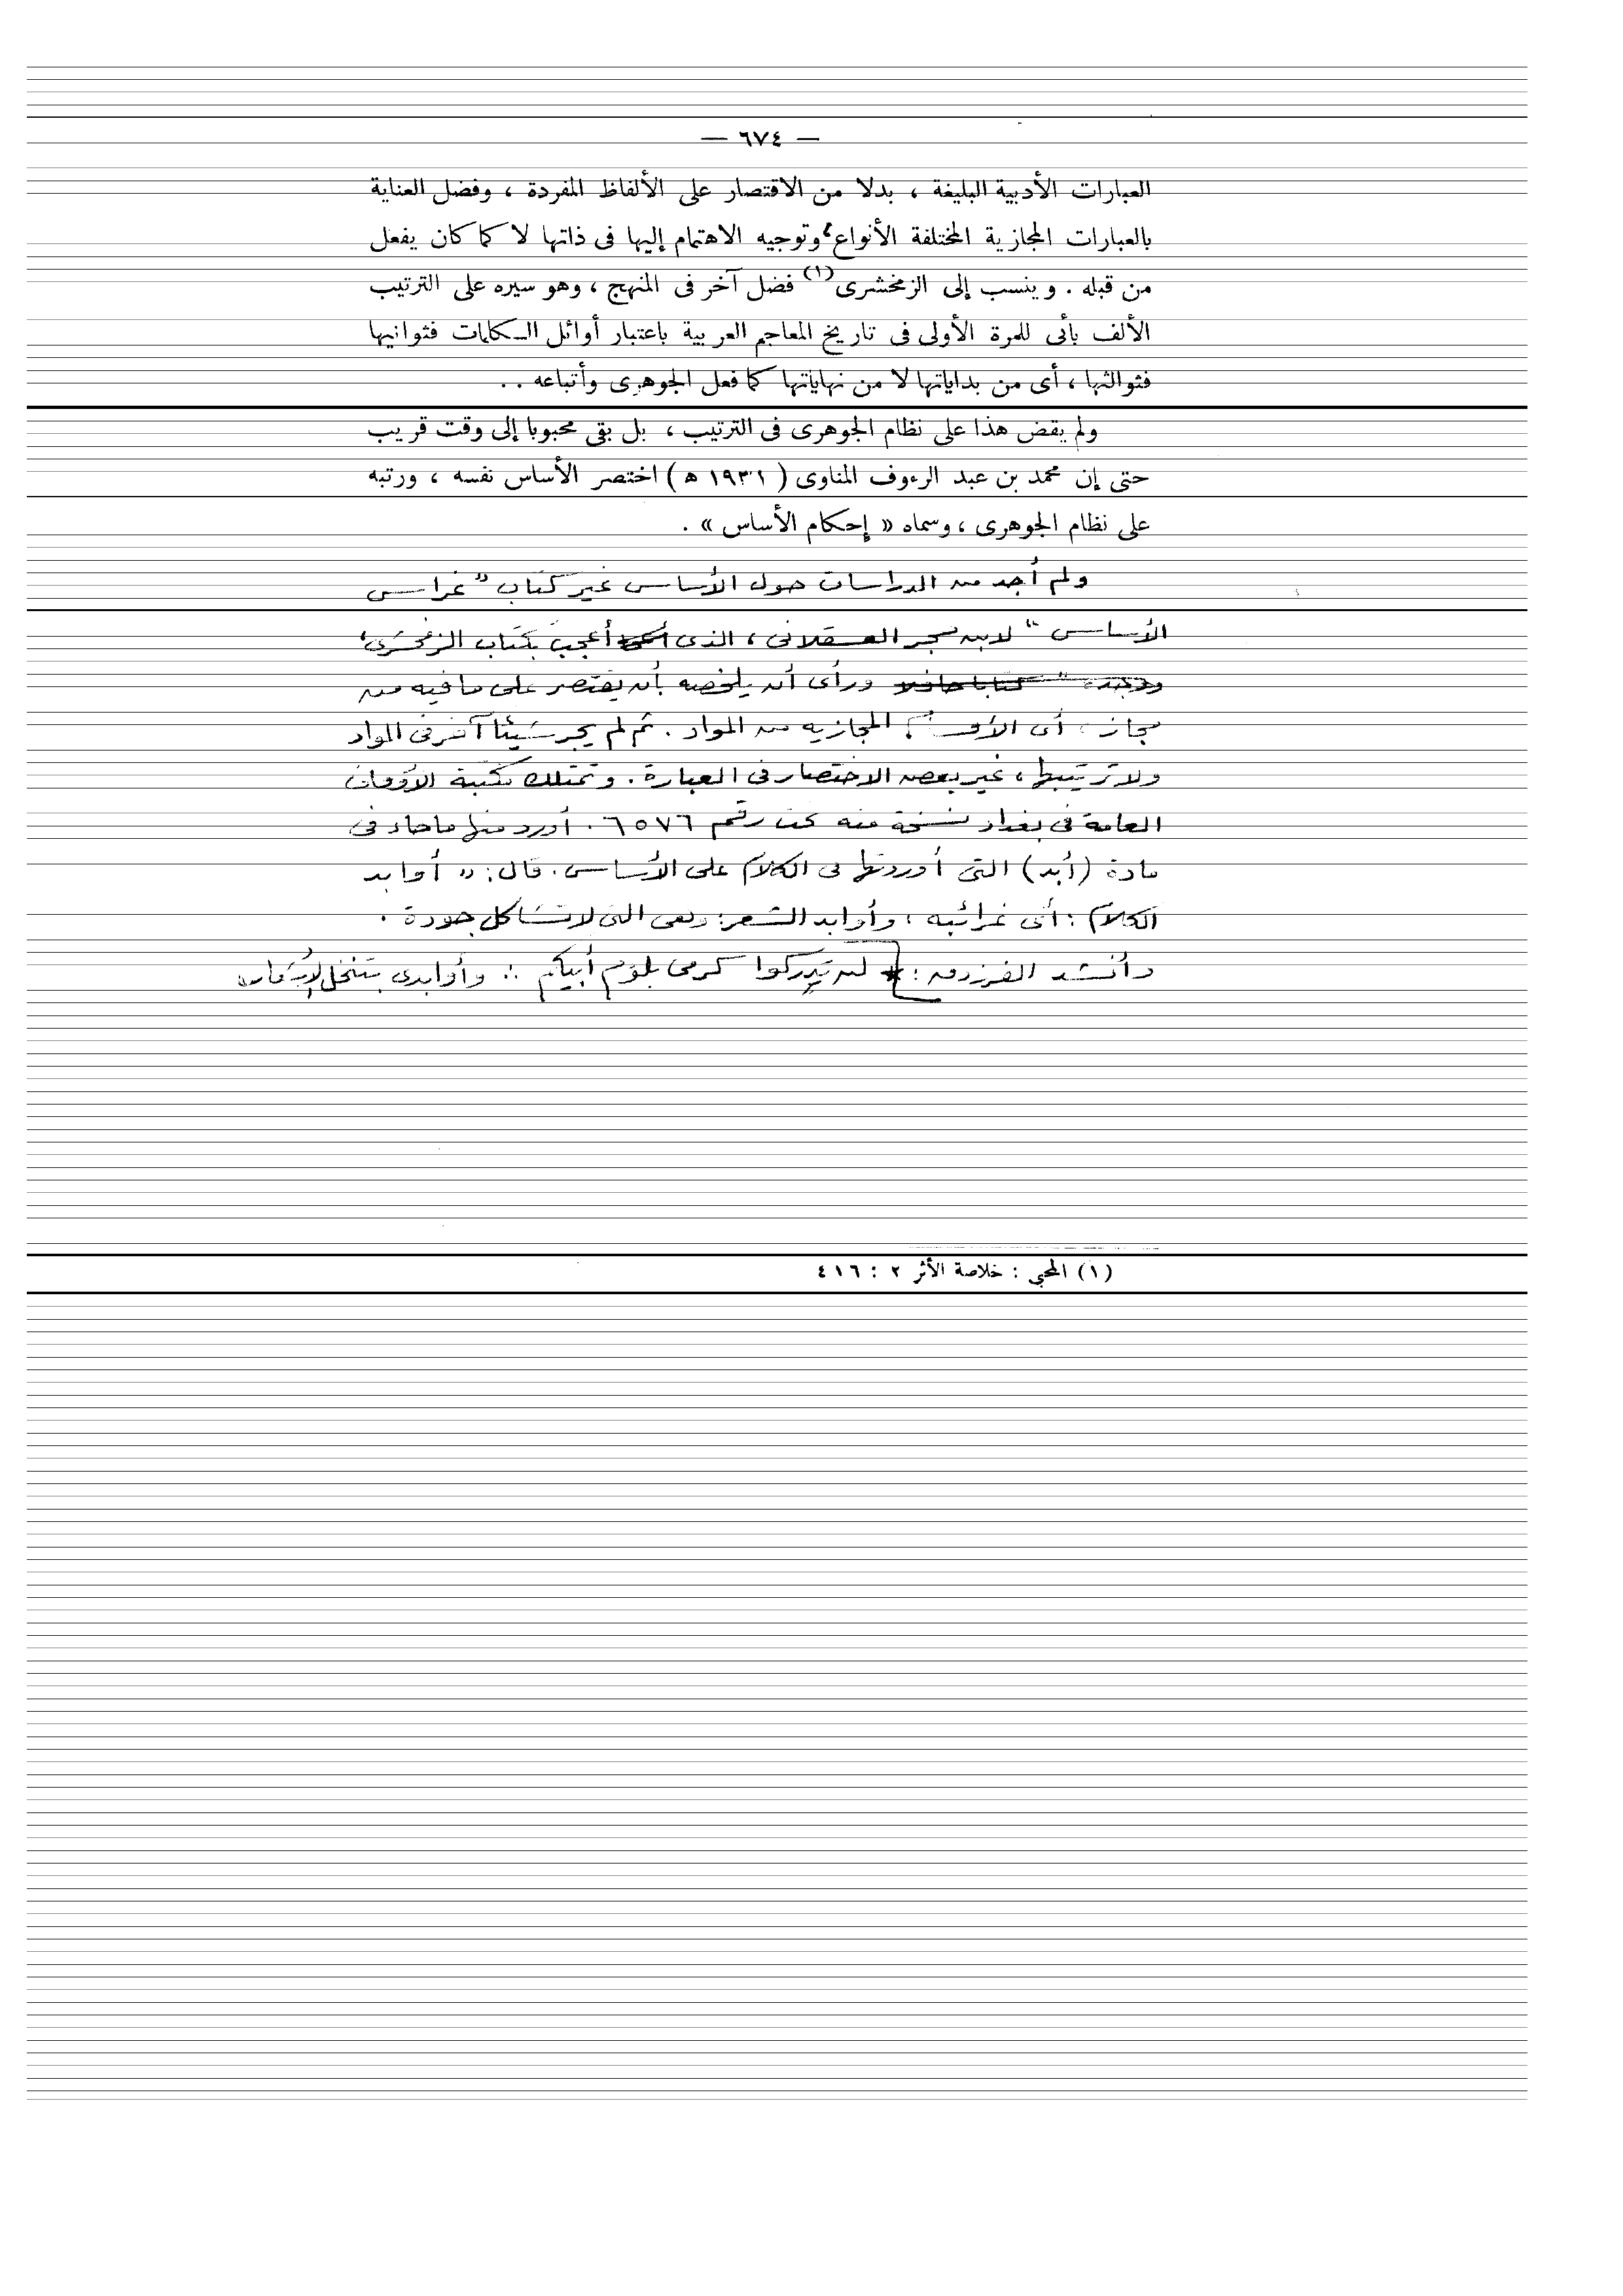 — ٦٧٤ —
العبارات الأدبية البليغة ، بدلا من الاقتصار على الألفاظ المفردة ، وفضل العناية
بالعبارات المجازية المختلفة الأنواع ، وتوجيه الاهتمام إليها فى ذاتها لا كما كان يفعل
من قبله . وينسب إلى الزمخشرى (١) فضل آخر فى المنهج ، وهو سيره على الترتيب
الألف بأئى للمرة الأولى فى تاريخ المعاجم العربية باعتبار أوائل الكلمات فثوانيها
فثوالثها ، أى من بداياتها لا من نهاياتها كما فعل الجوهرى وأتباعه . .
ولم يقض هذا على نظام الجوهرى فى الترتيب ، بل بقى محبوبا إلى وقت قريب
حتى إن محمد بن عبد الرءوف المناوى ( ١٩٣١ ه ) اختصر الأساس نفسه ، ورتبه
على نظام الجوهرى ، وسماه « إحكام الأساس » .
ولم أجد من الدراسات حول الأساس غير كتاب " غراس
الأساس " لابن حجر العسقلانى ، الذى أعجب بكتاب الزمخشرى ،
ورأى أن يلخصه بأن يقتصر على ما فيه من
مجاز ، أى الأقسام المجازية من المواد . ثم لم يجر شيئا آخر فى المواد
ولا ترتيبها ، غير بعض الاختصار فى العبارة . وتمتلك مكتبة الأوقاف
العامة فى بغداد نسخة منه تحت رقم ٦٥٧٦ . أورد منها ما جاء فى
مادة (أبد) التى أوردتها فى الكلام على الأساس . قال : " أوابد
الكلام : أى غرائبه ، وأوابد الشعر : وهى التى لا تشاكل جودة .
وأنشد الفرزدق : لن تدركوا كرمى بلؤم أبيكم ∴ وأوابدى بتنحل الأشعار "
(١) المحبي : خلاصة الأثر ٢ : ٤١٦